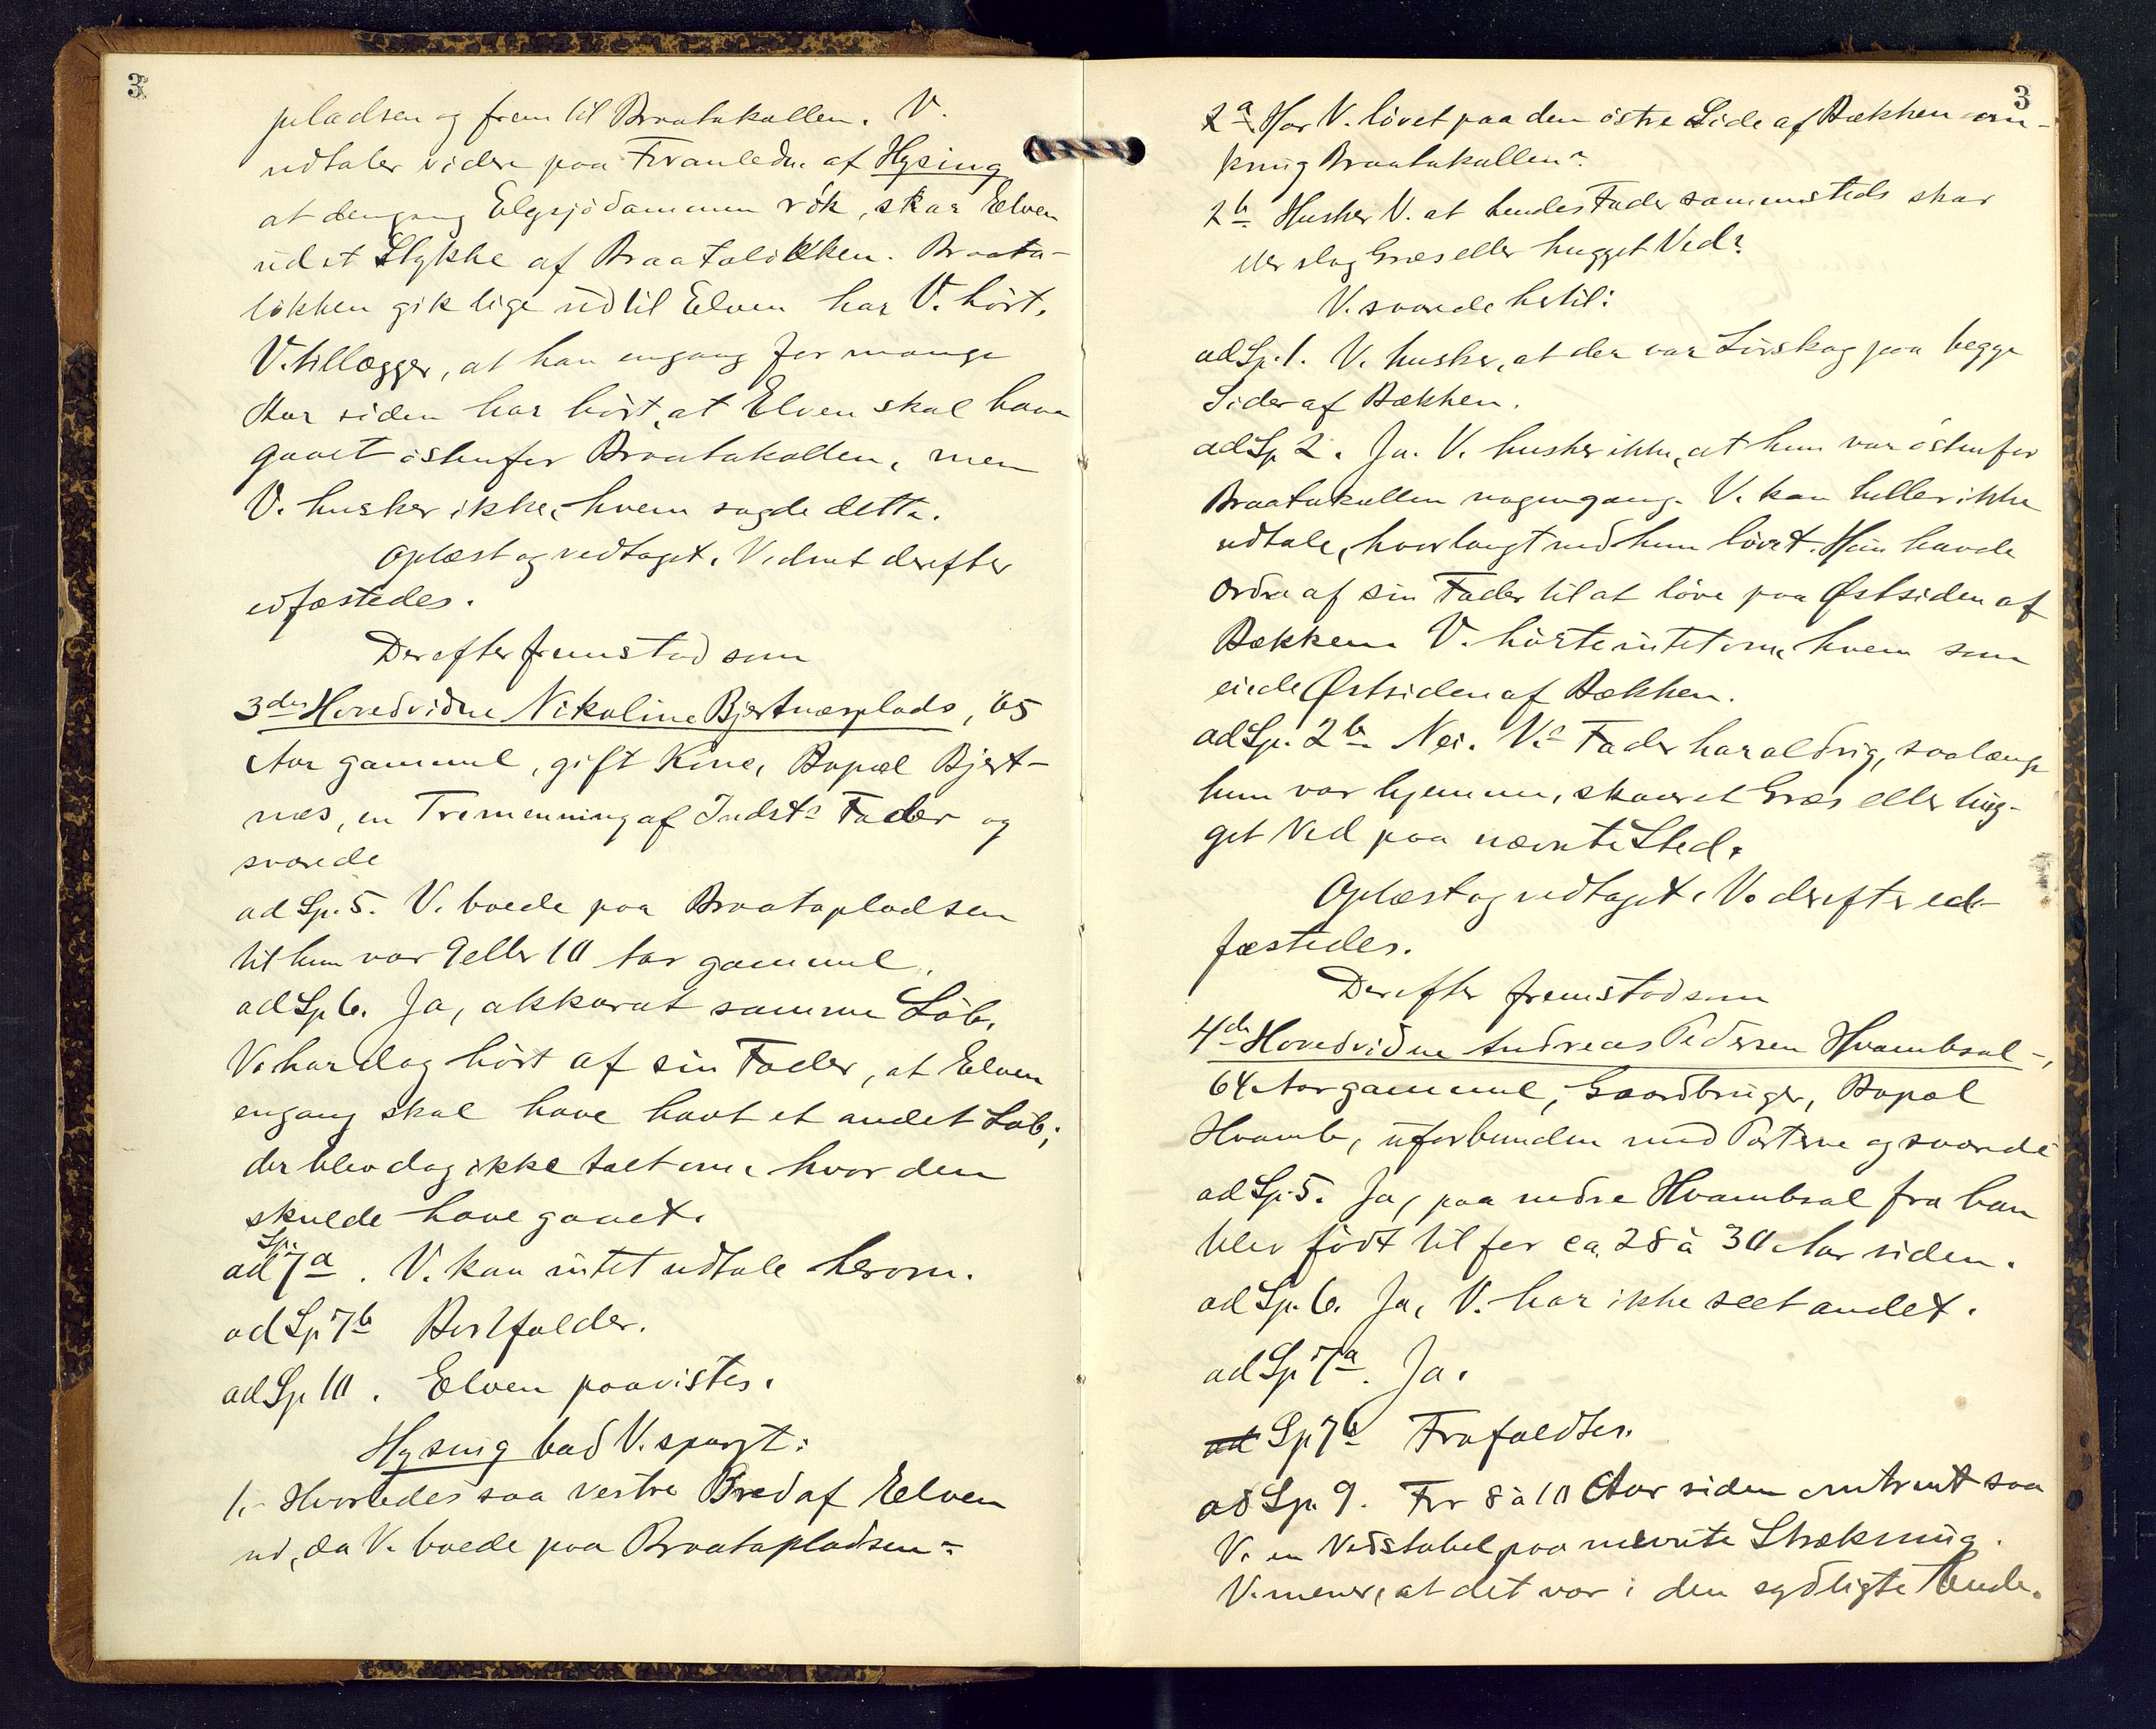 3
pladsen og frem til Braatakollen. V.
udtaler videre paa Foranledn. af Hysing
at dengang Elgsjödammen rök, skar Elven
ud et Stykke af Braatalökken. Braata-
lökken gik lige ud til Elven har V. hört.
V. tillægger, at han engang for mange
Aar siden har hört, at Elven skal have
gaaet östenfor Braatakollen, men
V. husker ikke, hvem sagde dette.
Oplæst og vedtaget. Vidnet derefter
edfæstedes.
Derefter fremstod som
3die Hovedvidne Nikoline Bjertnæsplads, 65
Aar gammel, gift Kone, Bopæl Bjert-
næs, en Tremenning af Indsts Fader og
svarede
ad Sp. 5. V. boede paa Braatapladsen
til hun var 9 eller 10 Aar gammel.
ad Sp 6. Ja, akkurat samme Löb.
V. har dog hört af sin Fader, at Elven
engang skal have havt et andet Löb;
der blev dog ikke talt om, hvor den
skulde have gaaet.
ad Sp. 7a. V. kan intet udtale herom.
ad Sp 7b Bortfalder.
ad Sp 10. Elven paavistes.
Hysing bad V. spurgt:
1.- Hvorledes saa vestre Bred af Elven
ud, da V. boede paa Braatapladsen?
3
2a Har V. lövet paa den östre Side af Bækken om-
kring Braatakollen?
2b Husker V. at hendes Fader sammesteds skar
eller slog Græs eller hugget Ved?
V. svarede hertil:
ad Sp. 1. V. husker, at der var Lövskog paa begge
Sider af Bækken.
ad Sp 2. Ja. V. husker ikke, at hun var östenfor
Braatakollen nogengang. V. kan heller ikke
udtale, hvor langt ned hun lövet. Hun havde
Ordre af sin Fader til at löve paa Østsiden af
Bækken. V. hörte intet om, hvem som
eiede Østsiden af Bækken.
ad Sp. 2b. Nei. V.s Fader har aldrig, saalænge
hun var hjemme, skaaret Græs eller hug-
get Ved paa nævnte Sted.
Oplæst og vedtaget. V. derefter ed-
fæstedes.
Derefter fremstod som
4de Hovedvidne Andreas Pedersen Hvambsal-,
64 Aar gammel, Gaardbruger, Bopæl
Hvamb, uforbunden med Parterne og svarede
ad Sp. 5. Ja, paa nedre Hvambsal fra han
blev födt til for ca. 28 à 30 Aar siden.
ad Sp. 6. Ja, V. har ikke seet andet.
ad Sp 7a. Ja.
ad Sp 7b Frafaldtes.
ad Sp. 9. For 8 à 10 Aar siden omtrent saa
V. en Vedstabel paa nævnte Strækning.
V. mener, at det var i den sydligste Ende.